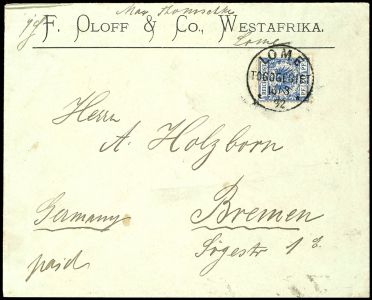 F. OLOFF & CO., WESTAFRIKA.
Lome
LOME
TOGOGEBIET
10/3
92
Herrn
A. Holzborn
Germany Bremen
Sögestr 18.
paid